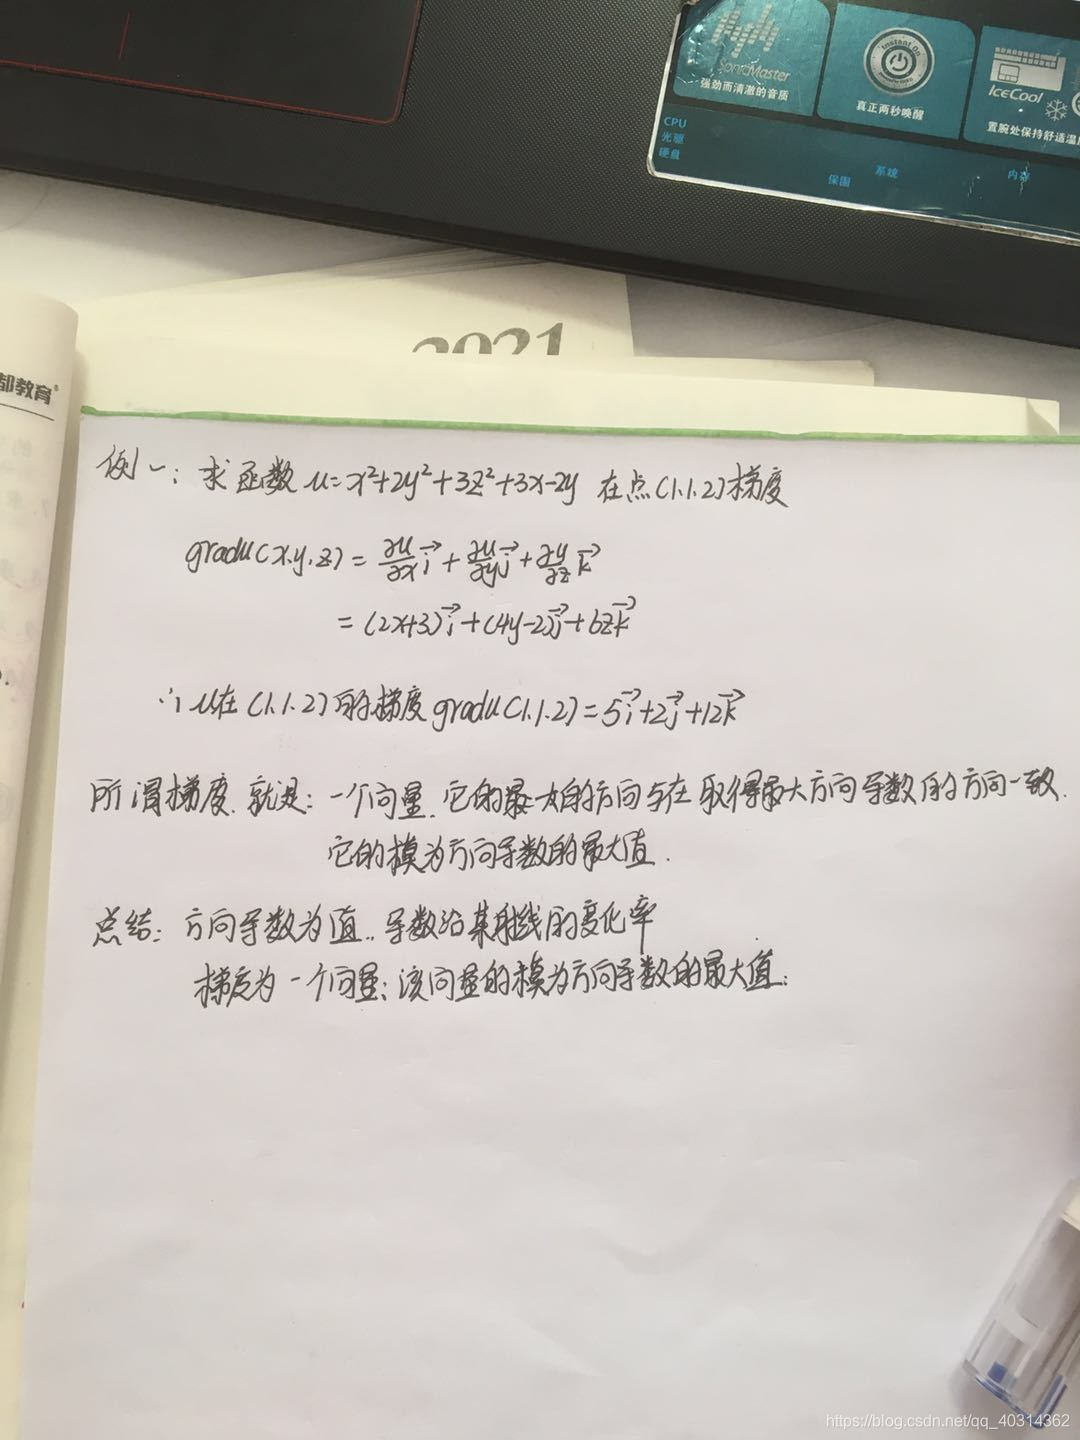 SonicMaster
强劲而清澈的音质
Instant On
真正两秒唤醒
IceCool
置腕处保持舒适温
CPU
光驱
硬盘
保固
系统
内存
2021
都教育
例一: 求函数 u=x²+2y²+3z²+3x-2y 在点(1,1,2)梯度
gradu(x,y,z) = ∂u/∂x i⃗ + ∂u/∂y j⃗ + ∂y/∂z k⃗
= (2x+3)i⃗ + (4y-2)j⃗ + 6zk⃗
∴ u在(1,1,2)的梯度gradu(1,1,2) = 5i⃗+2j⃗+12k⃗
所谓梯度.就是: 一个向量.它的最大的方向与在取得最大方向导数的方向一致.
它的模为方向导数的最大值.
总结: 方向导数为值..导数沿某射线的变化率
梯度为一个向量;该向量的模为方向导数的最大值;
https://blog.csdn.net/qq_40314362